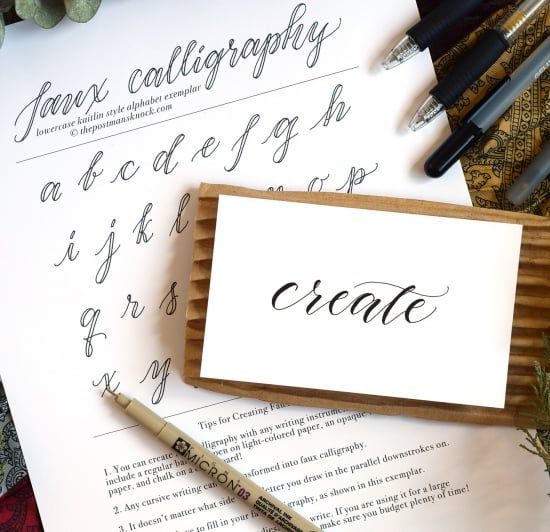 faux calligraphy
lowercase kaitlin style alphabet exemplar
© thepostmansknock.com
a b c d e f g h
i j k l n o p
q r s
x y
create
Tips for Creating Faux
1. You can create calligraphy with any writing instrument
include a regular pen on light-colored paper, an opaque
paper, and chalk on a board!
2. Any cursive writing can transformed into faux calligraphy.
3. It doesn't matter what side letter you draw in the parallel downstrokes on.
calligraphy, as shown in this exemplar.
have to fill in your write. If you are using it for a large
make sure you budget plenty of time!
SAKURA
MICRON 03